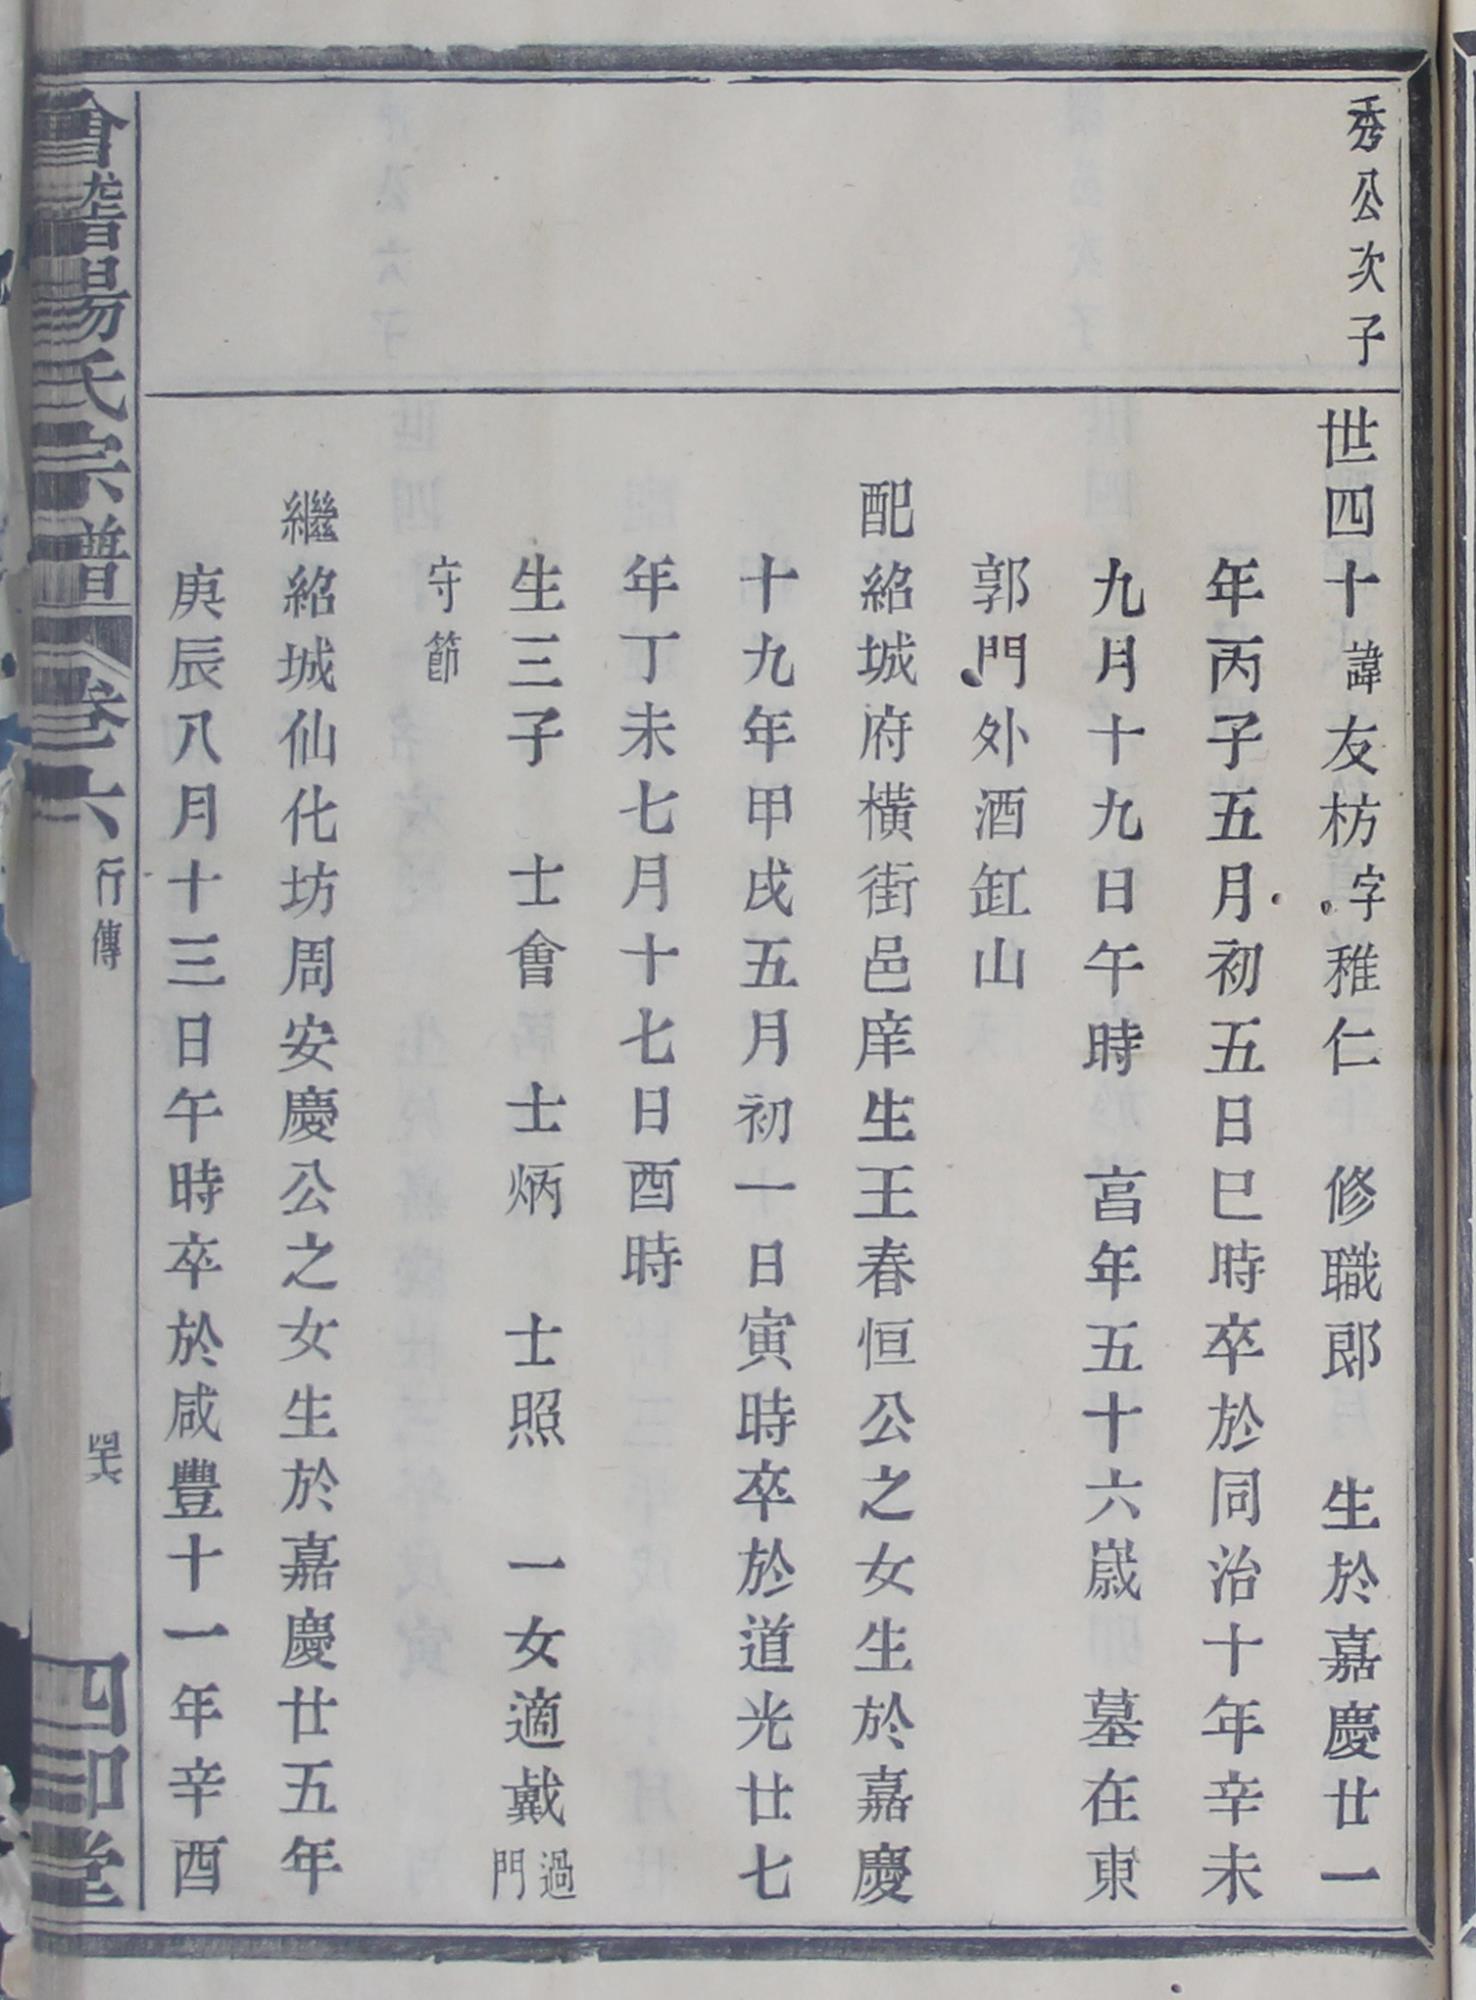 秀公次子
世四十諱友枋字稚仁　修職郎　生於嘉慶廿一
年丙子五月初五日巳時卒於同治十年辛未
九月十九日午時　亯年五十六嵗　墓在東
郭門外酒缸山
配紹城府橫街邑庠生王春恒公之女生於嘉慶
十九年甲戌五月初一日寅時卒於道光廿七
年丁未七月十七日酉時
生三子　士會　士炳　士照　一女適戴過門
守節
繼紹城仙化坊周安慶公之女生於嘉慶廿五年
庚辰八月十三日午時卒於咸豐十一年辛酉
會稽楊氏宗譜 卷六 行傳 四六 四知堂